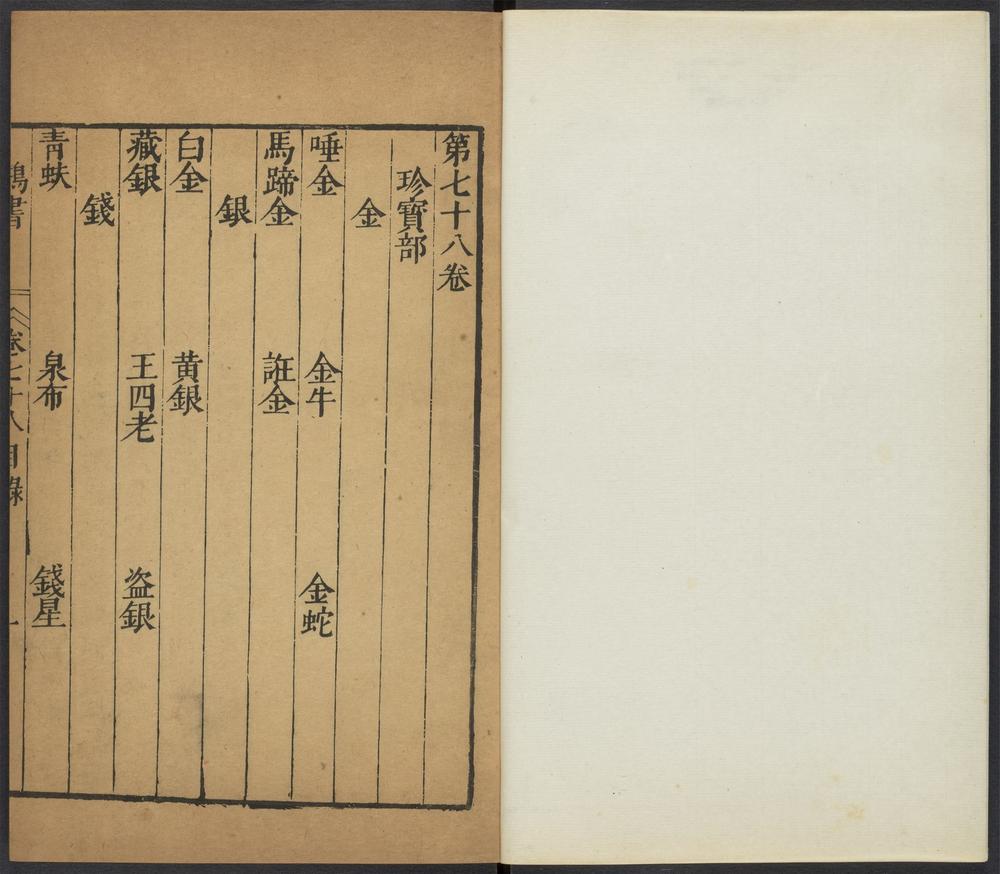 第七十八卷
珍寶部
金
唾金 金牛 金蛇
馬蹄金 誑金
銀
白金 黄銀
藏銀 王四老 盗銀
錢
青蚨 泉布 錢星
鴻書 卷七十八目錄 一